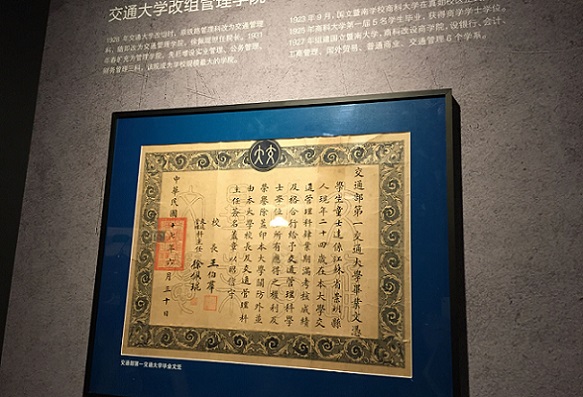 交通大学改组管理学院
1928 年交通大学改组时，原铁路管理科改为交通管理
科，随即改为交通管理学院，
年春扩充为管理学院，先后增设实业管理、公务管理、
财务管理三科，该院成为学校规模最大的学院。
1923 年 9 月，国立暨南学校商科大学在真如校
1925 年商科大学第一届 5 名学生毕业，获得商学学士学位。
1927 年组建国立暨南大学，商科改设商学院，设银行、会计、
工商管理、国外贸易、普通商业、交通管理 6 个学系。
交通部第一交通大學畢業文憑
學生童士逵係江蘇省崇明縣
人現年二十四歲在本大學交
通管理科肄業期滿考核成績
及格合行給予交通管理科學
士學位所有應得之權利及
榮譽除蓋印本大學關防外並
由本大學校長及交通管理科
主任簽名蓋章以昭信守
校長 王伯羣
管理科主任 徐佩琨
中華民國十六年六月三十日
交通部第一交通大学毕业文凭